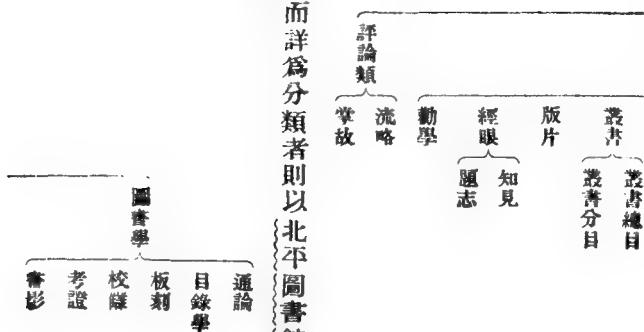 叢書
叢書總目
叢書分目
版片
經眼
知見
題志
勸學
評論類
流略
掌故
而詳爲分類者則以北平圖書
圖書學
通論
目錄學
板刻
校讎
考證
書影